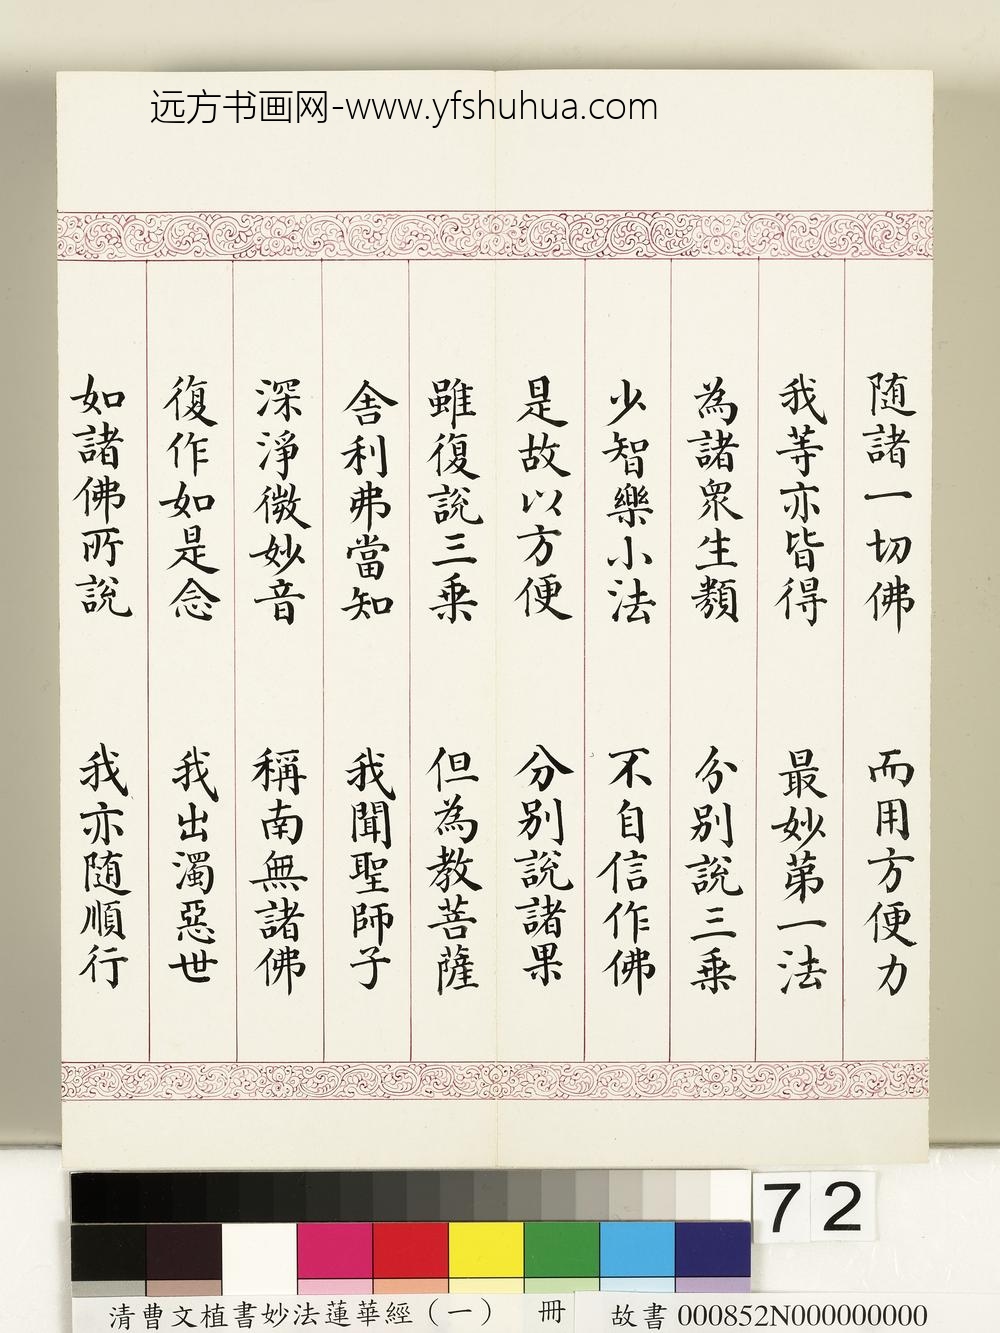 远方书画网-www.yfshuhua.com
随諸一切佛 而用方便力
我等亦皆得 最妙第一法
為諸衆生類 分别說三乗
少智樂小法 不自信作佛
是故以方便 分别說諸果
雖復說三乗 但為教菩薩
舍利弗當知 我聞聖師子
深淨微妙音 稱南無諸佛
復作如是念 我出濁惡世
如諸佛所說 我亦随順行
72
清曹文植書妙法蓮華經（一） 冊 故書 000852N000000000